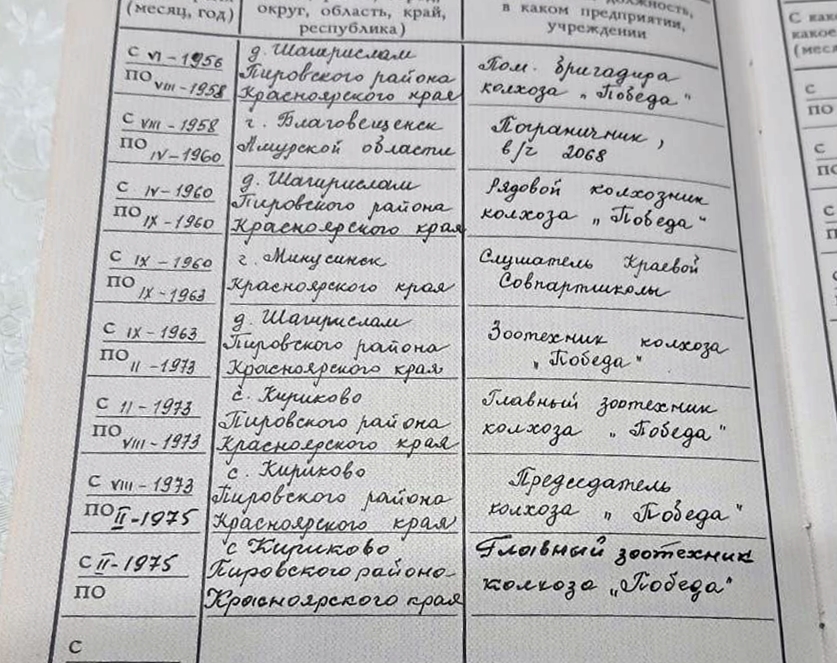 (месяц, год)
округ, область, край,
республика)
должность,
в каком предприятии,
учреждении
С как
какое
(меся
С VI-1956
ПО VIII-1958
д. Шагирислам
Пировского района
Красноярского края
Пом. бригадира
колхоза „Победа"
С VIII-1958
ПО IV-1960
г. Благовещенск
Амурской области
Пограничник,
в/г 2068
С IV-1960
ПО IX-1960
д. Шагирислам
Пировского района
Красноярского края
Рядовой колхозник
колхоза „Победа"
С IX-1960
ПО IX-1963
г. Минусинск
Красноярского края
Слушатель Краевой
Совпартшколы
С IX-1963
ПО II-1973
д. Шагирислам
Пировского района
Красноярского края
Зоотехник колхоза
„Победа"
С II-1973
ПО VIII-1973
с. Кириково
Пировского района
Красноярского края
Главный зоотехник
колхоза „Победа"
С VIII-1973
ПО II-1975
с. Кириково
Пировского района
Красноярского края
Председатель
колхоза „Победа"
С II-1975
ПО
с Кириково
Пировского района
Красноярского края
Главный зоотехник
колхоза „Победа"
С
С
ПО
С
ПО
С
П